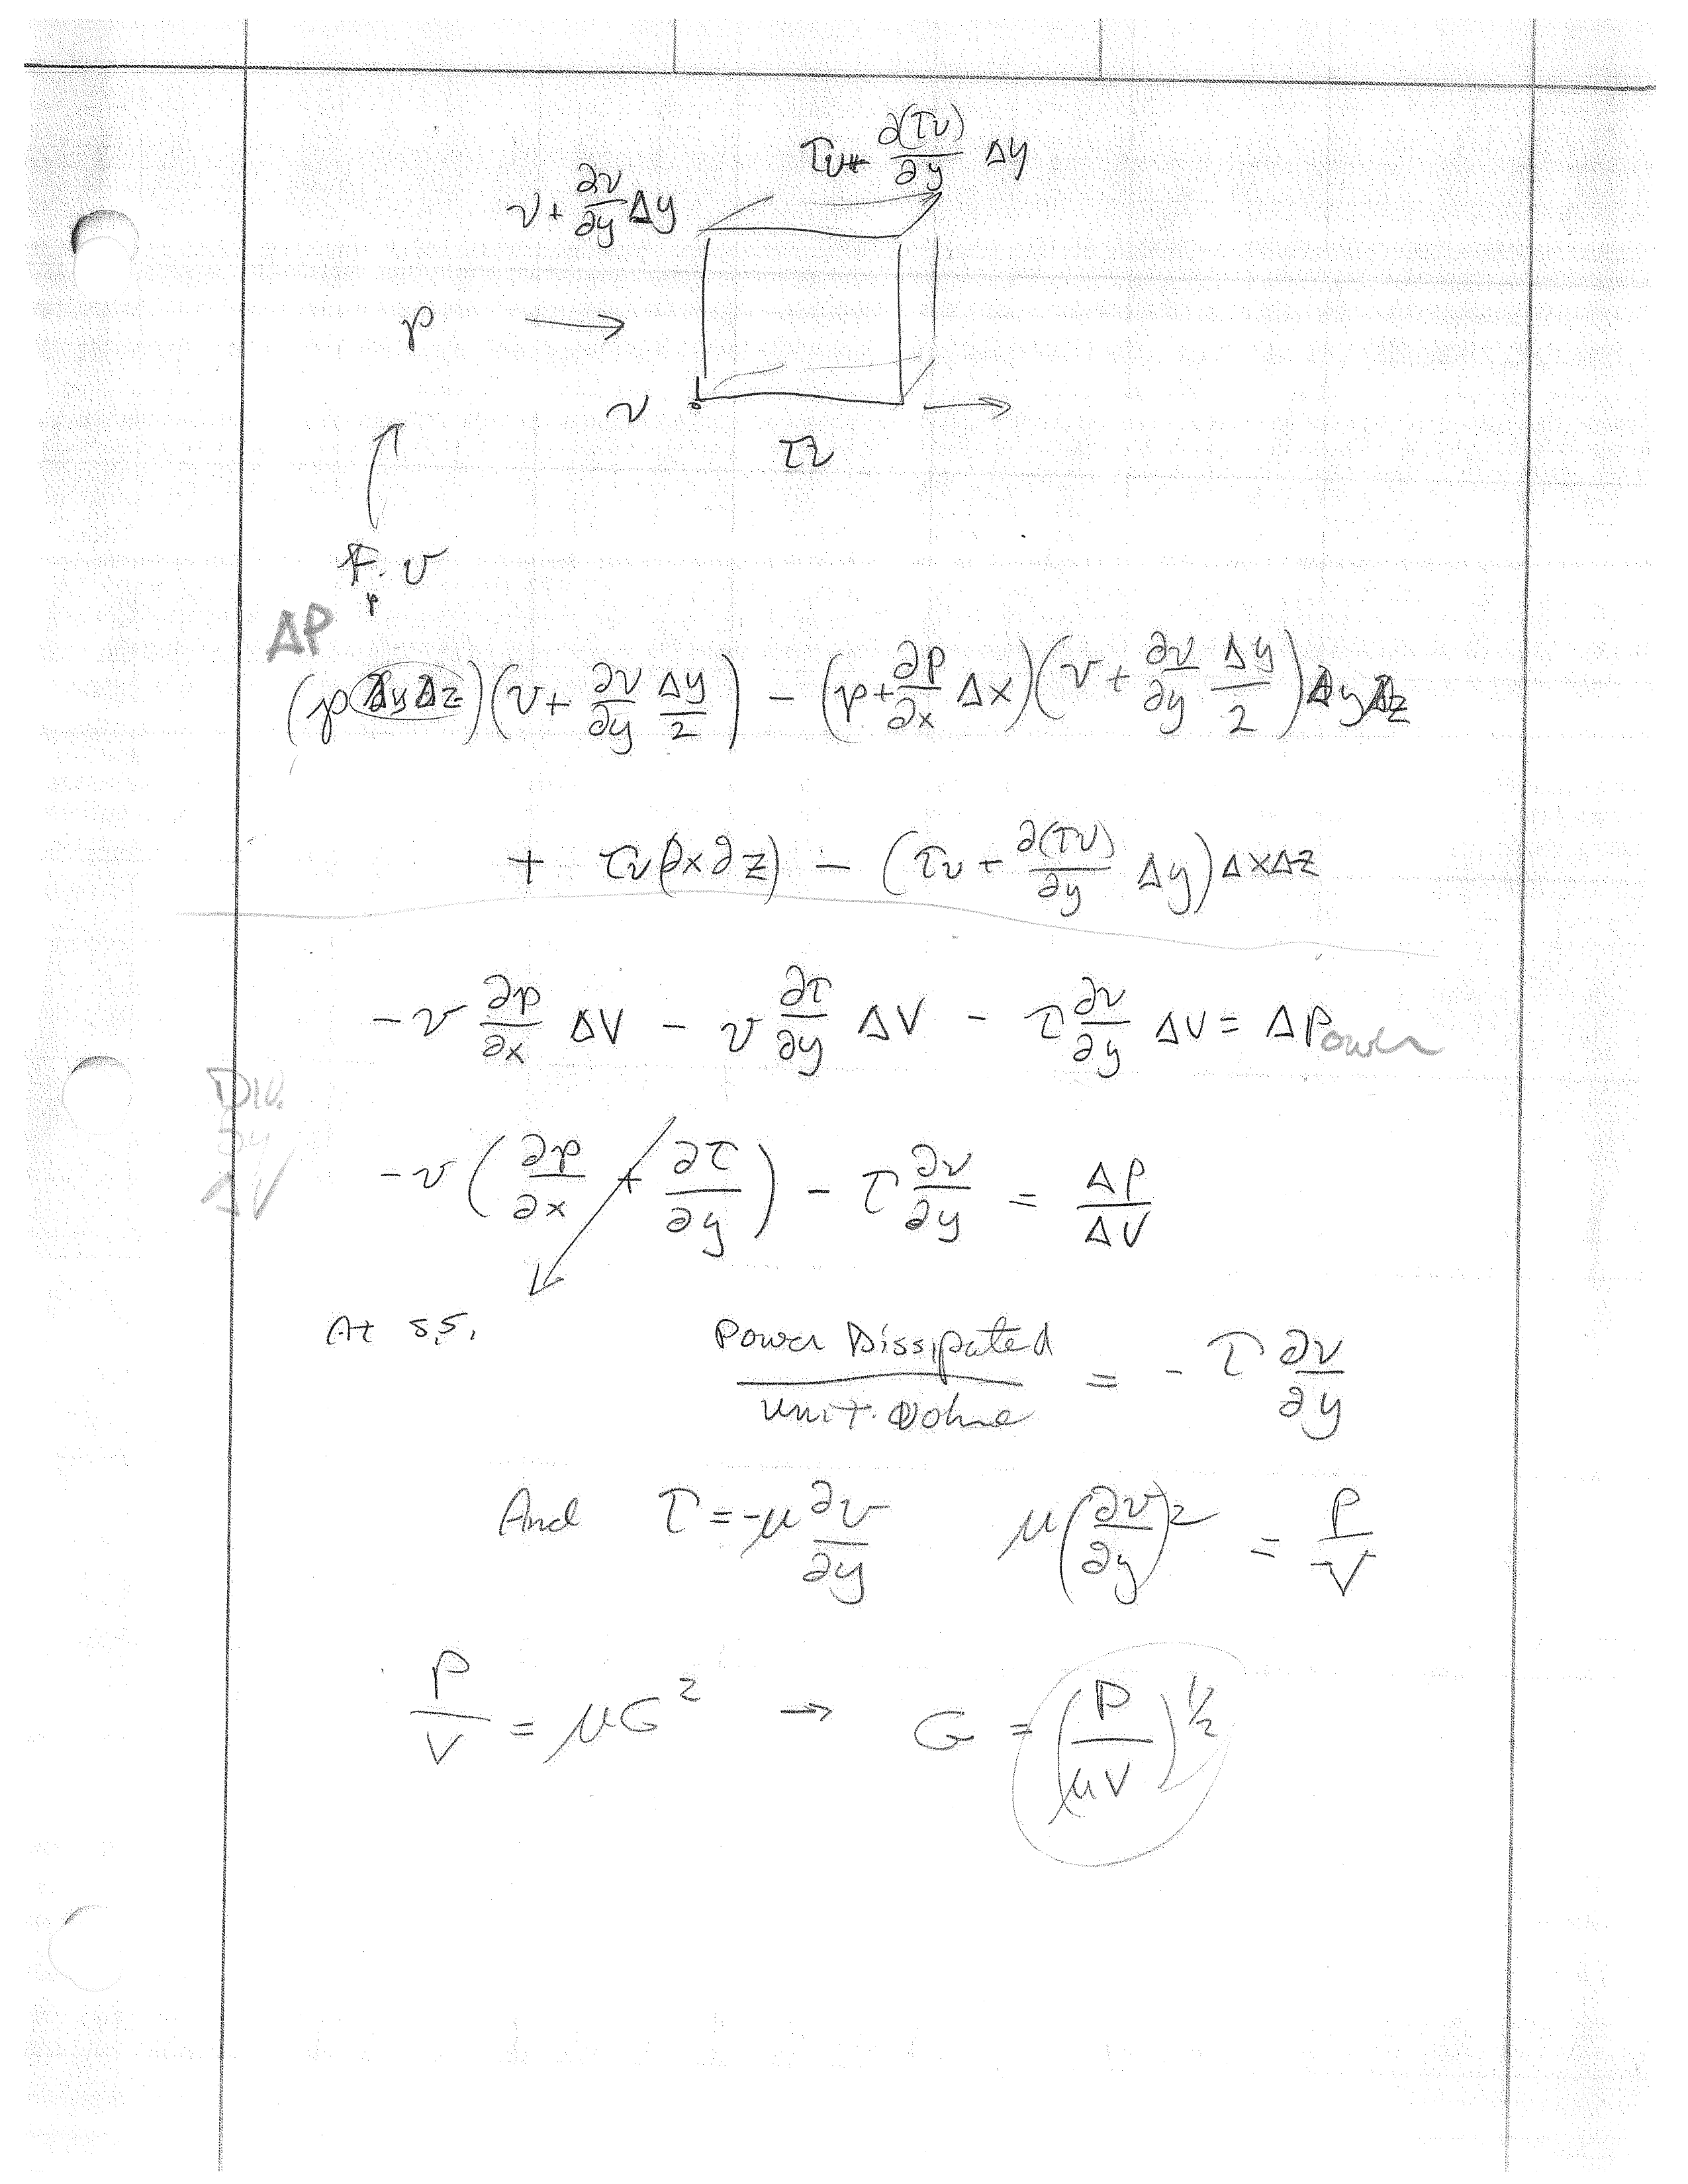 τv + ∂(τv)/∂y Δy
v + ∂v/∂y Δy
p →
v
τv
F · v
p
ΔP
(p ΔyΔz)(v + ∂v/∂y Δy/2) - (p + ∂p/∂x Δx)(v + ∂v/∂y Δy/2) ΔyΔz
+ τv(∂x∂z) - (τv + ∂(τv)/∂y Δy) ΔxΔz
-v ∂p/∂x ΔV - v ∂τ/∂y ΔV - τ ∂v/∂y ΔV = ΔPower
Div. by ΔV
-v (∂p/∂x + ∂τ/∂y) - τ ∂v/∂y = ΔP/ΔV
At s.s.
Power Dissipated / unit volume = - τ ∂v/∂y
And τ = -μ ∂v/∂y μ(∂v/∂y)² = P/V
P/V = μG² → G = (P/μV)^1/2